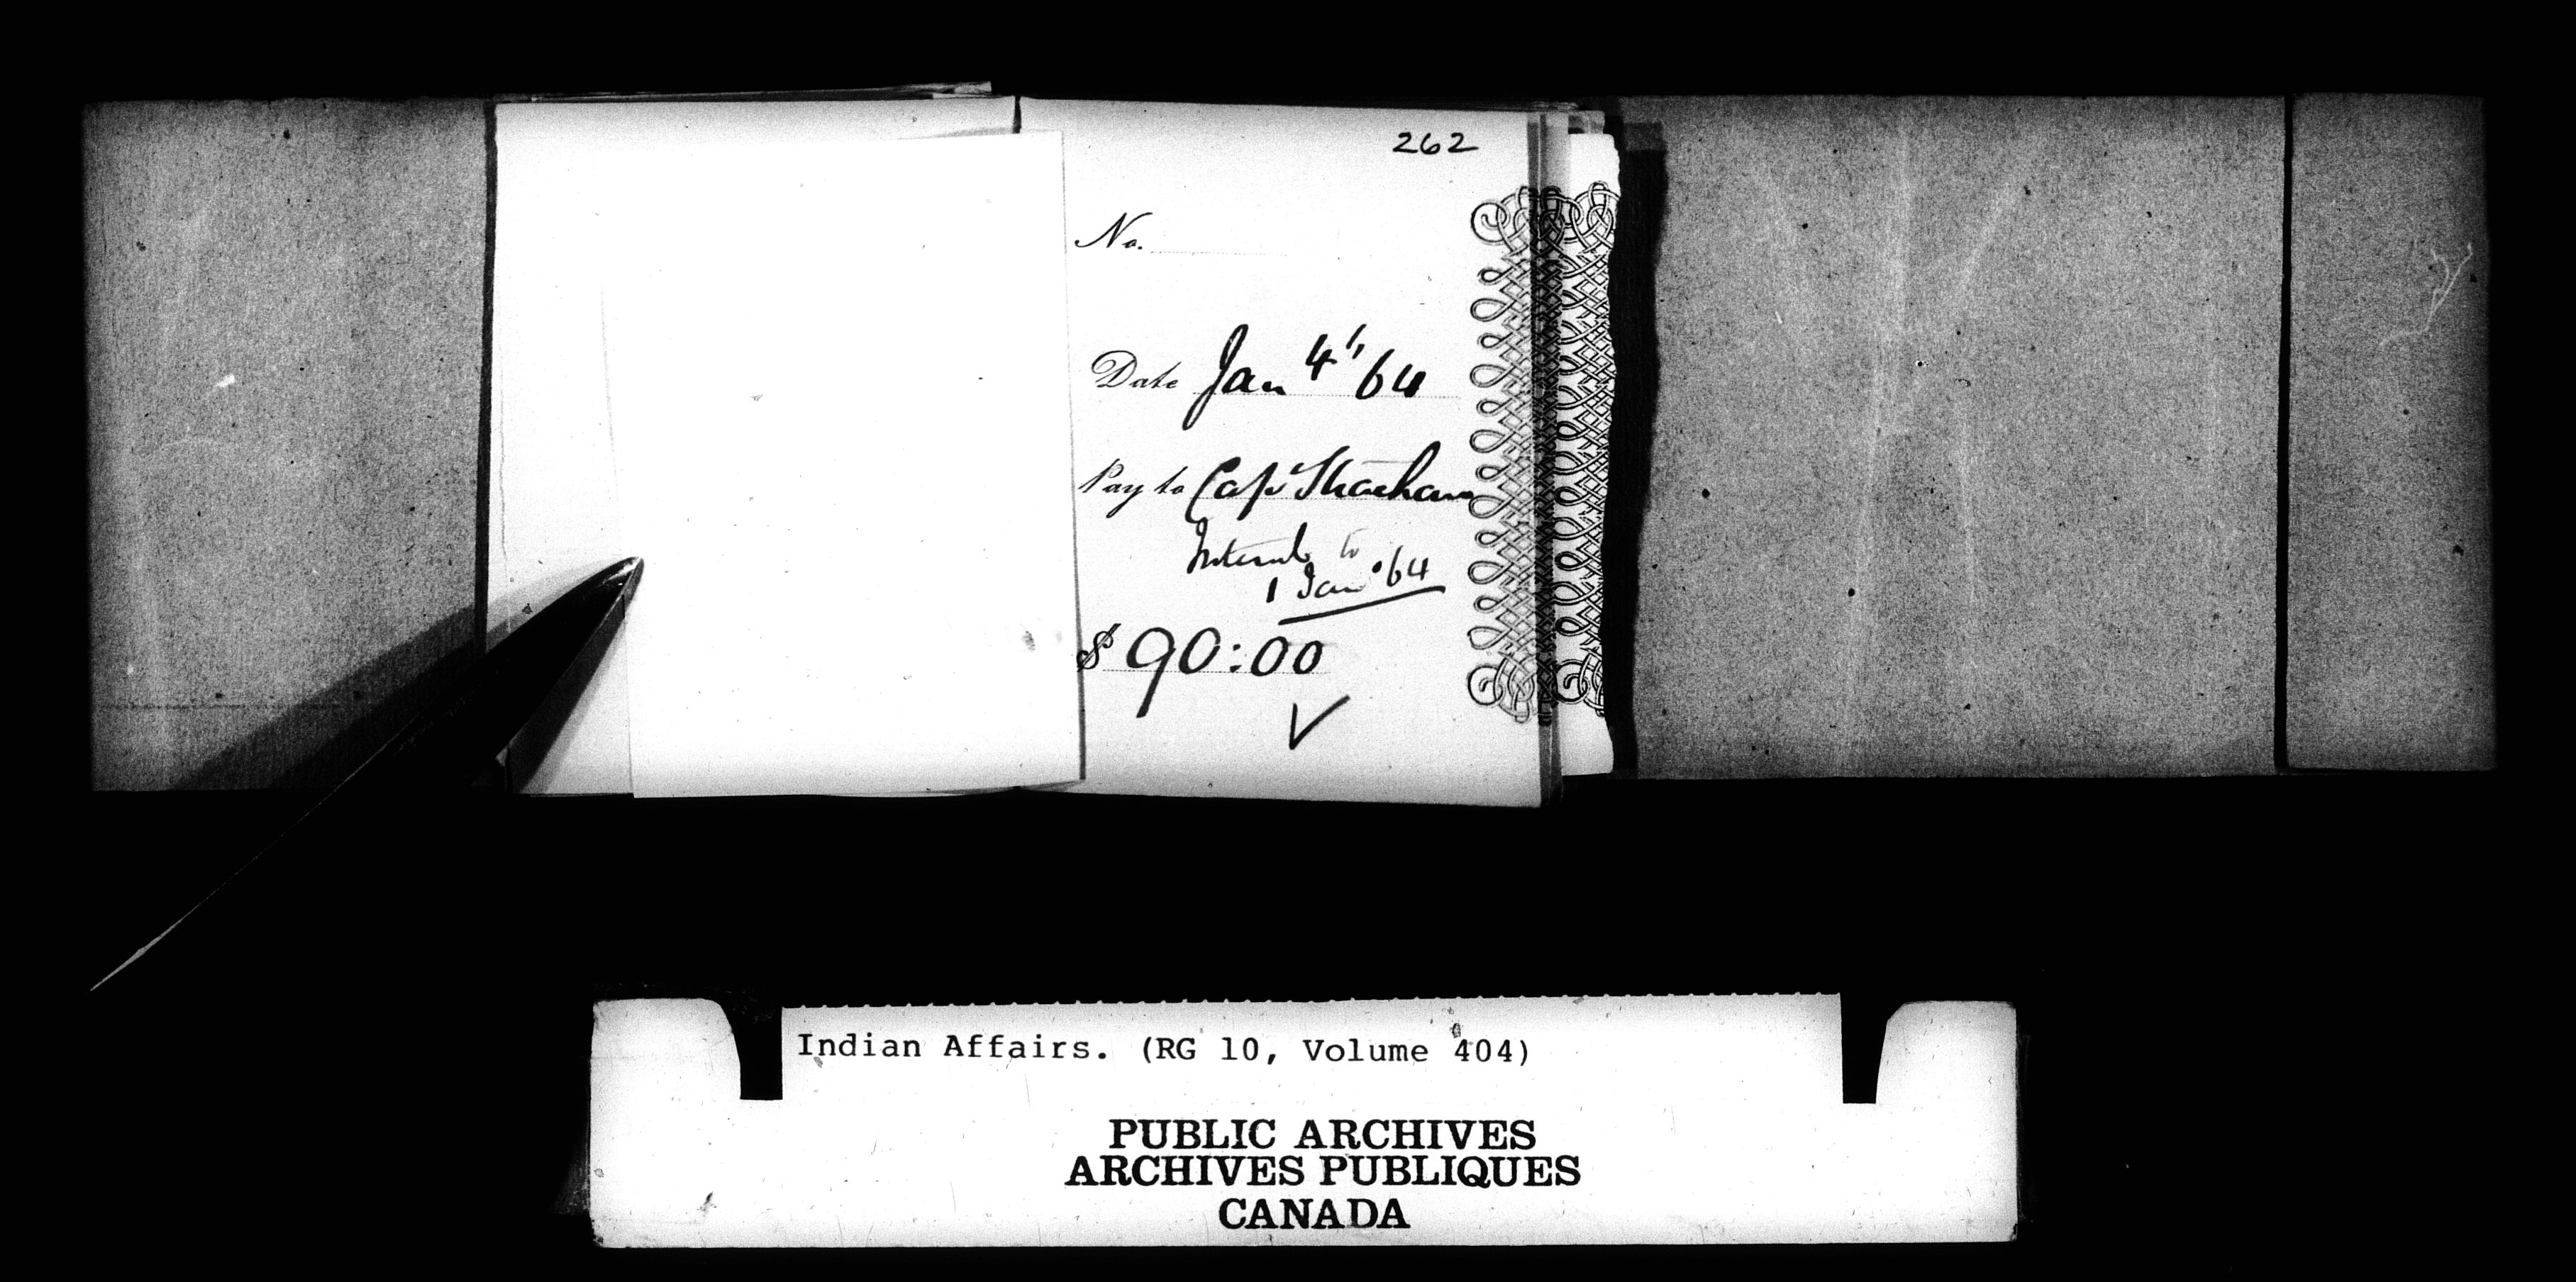 262
No.
Date Jan 4th, 64
Pay to Capt Strachan
Interest to
1 Jan '64
$ 90:00
Indian Affairs. (RG 10, Volume 404)
PUBLIC ARCHIVES
ARCHIVES PUBLIQUES
CANADA